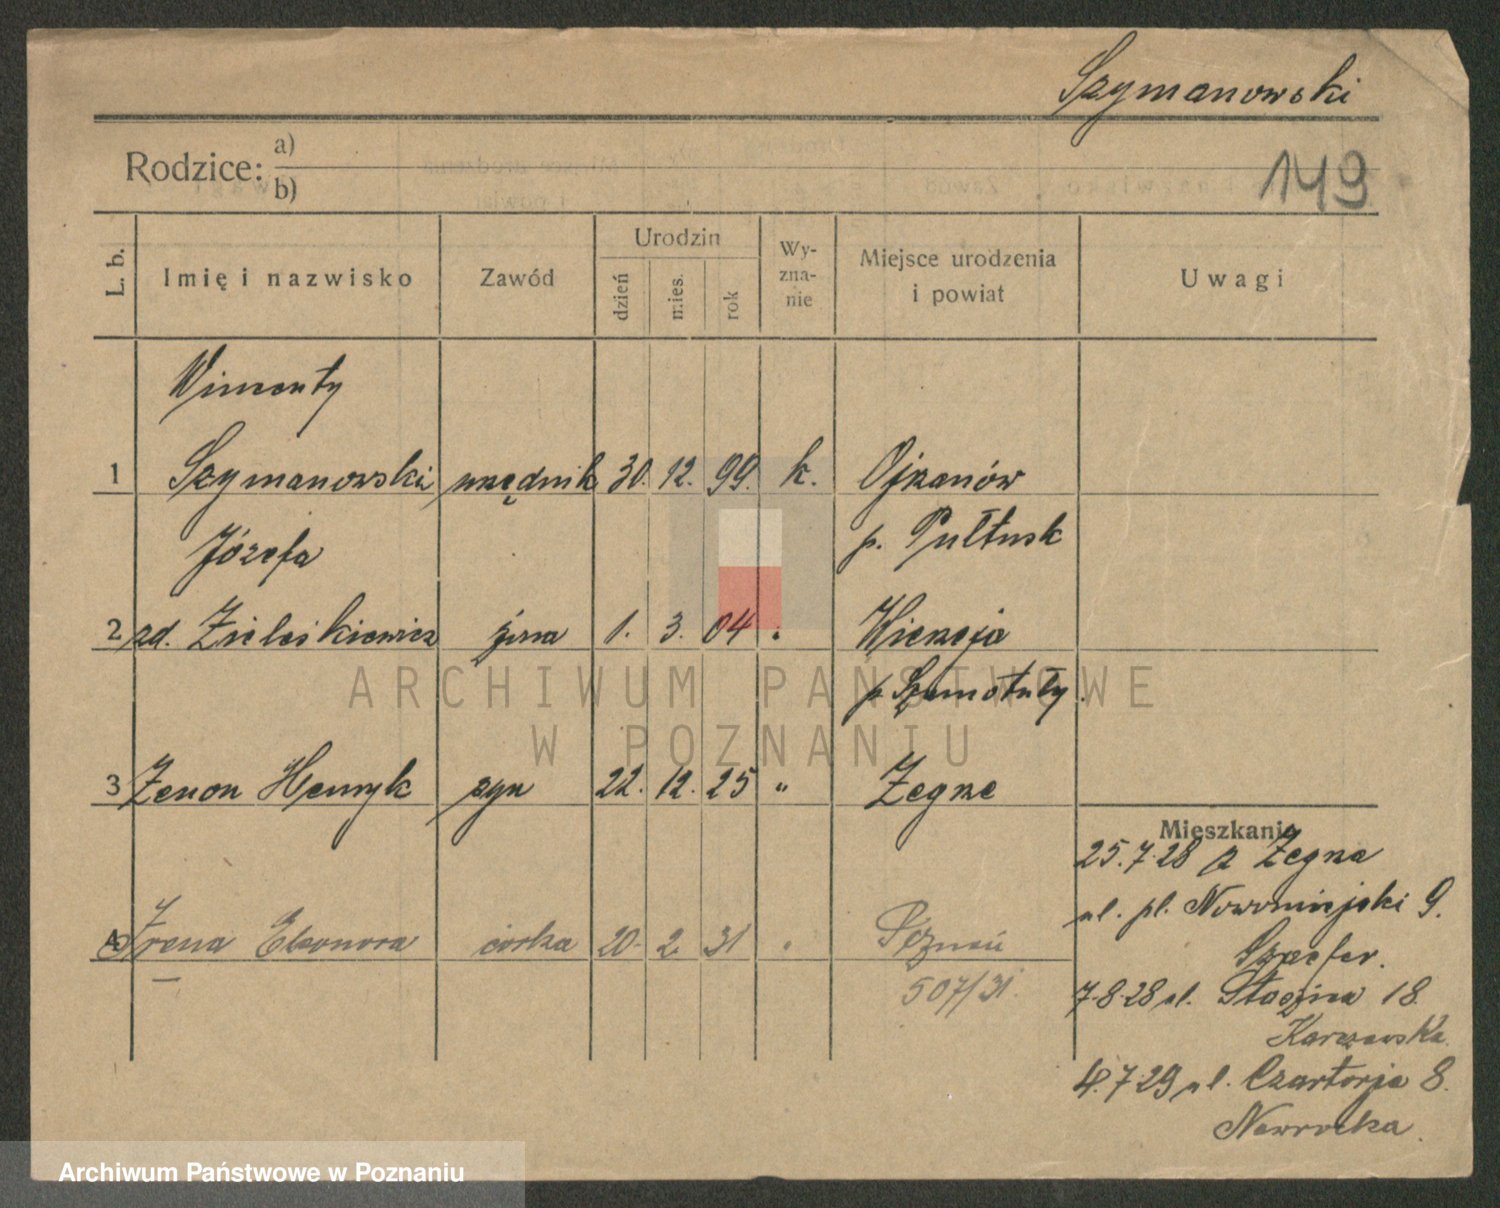 Szymanowski
149
Rodzice: a)
b)
L. b. Imię i nazwisko Zawód Urodzin dzień mies. rok Wy-zna-nie Miejsce urodzenia i powiat Uwagi
Wincenty
1 Szymanowski urzędnik 30. 12. 99. k. Ojrzanów
Józefa p. Pułtusk
2 zd. żona 1. 3. 04 "
p. Szamotuły
3 Zenon Henryk syn 22. 12. 25 " Zegrze
Mieszkanie
25.7.28 z Zegrza
ul. pl. Nowomiejski 9.
4 Irena Eleonora córka 20. 2. 31 " Poznań
Szaefer.
507/31.
7.8.28 ul. 18.
Karczewska
4.7.29 ul. Czartorja 8.
Nawrocka.
ARCHIWUM PAŃSTWOWE
W POZNANIU
Archiwum Państwowe w Poznaniu